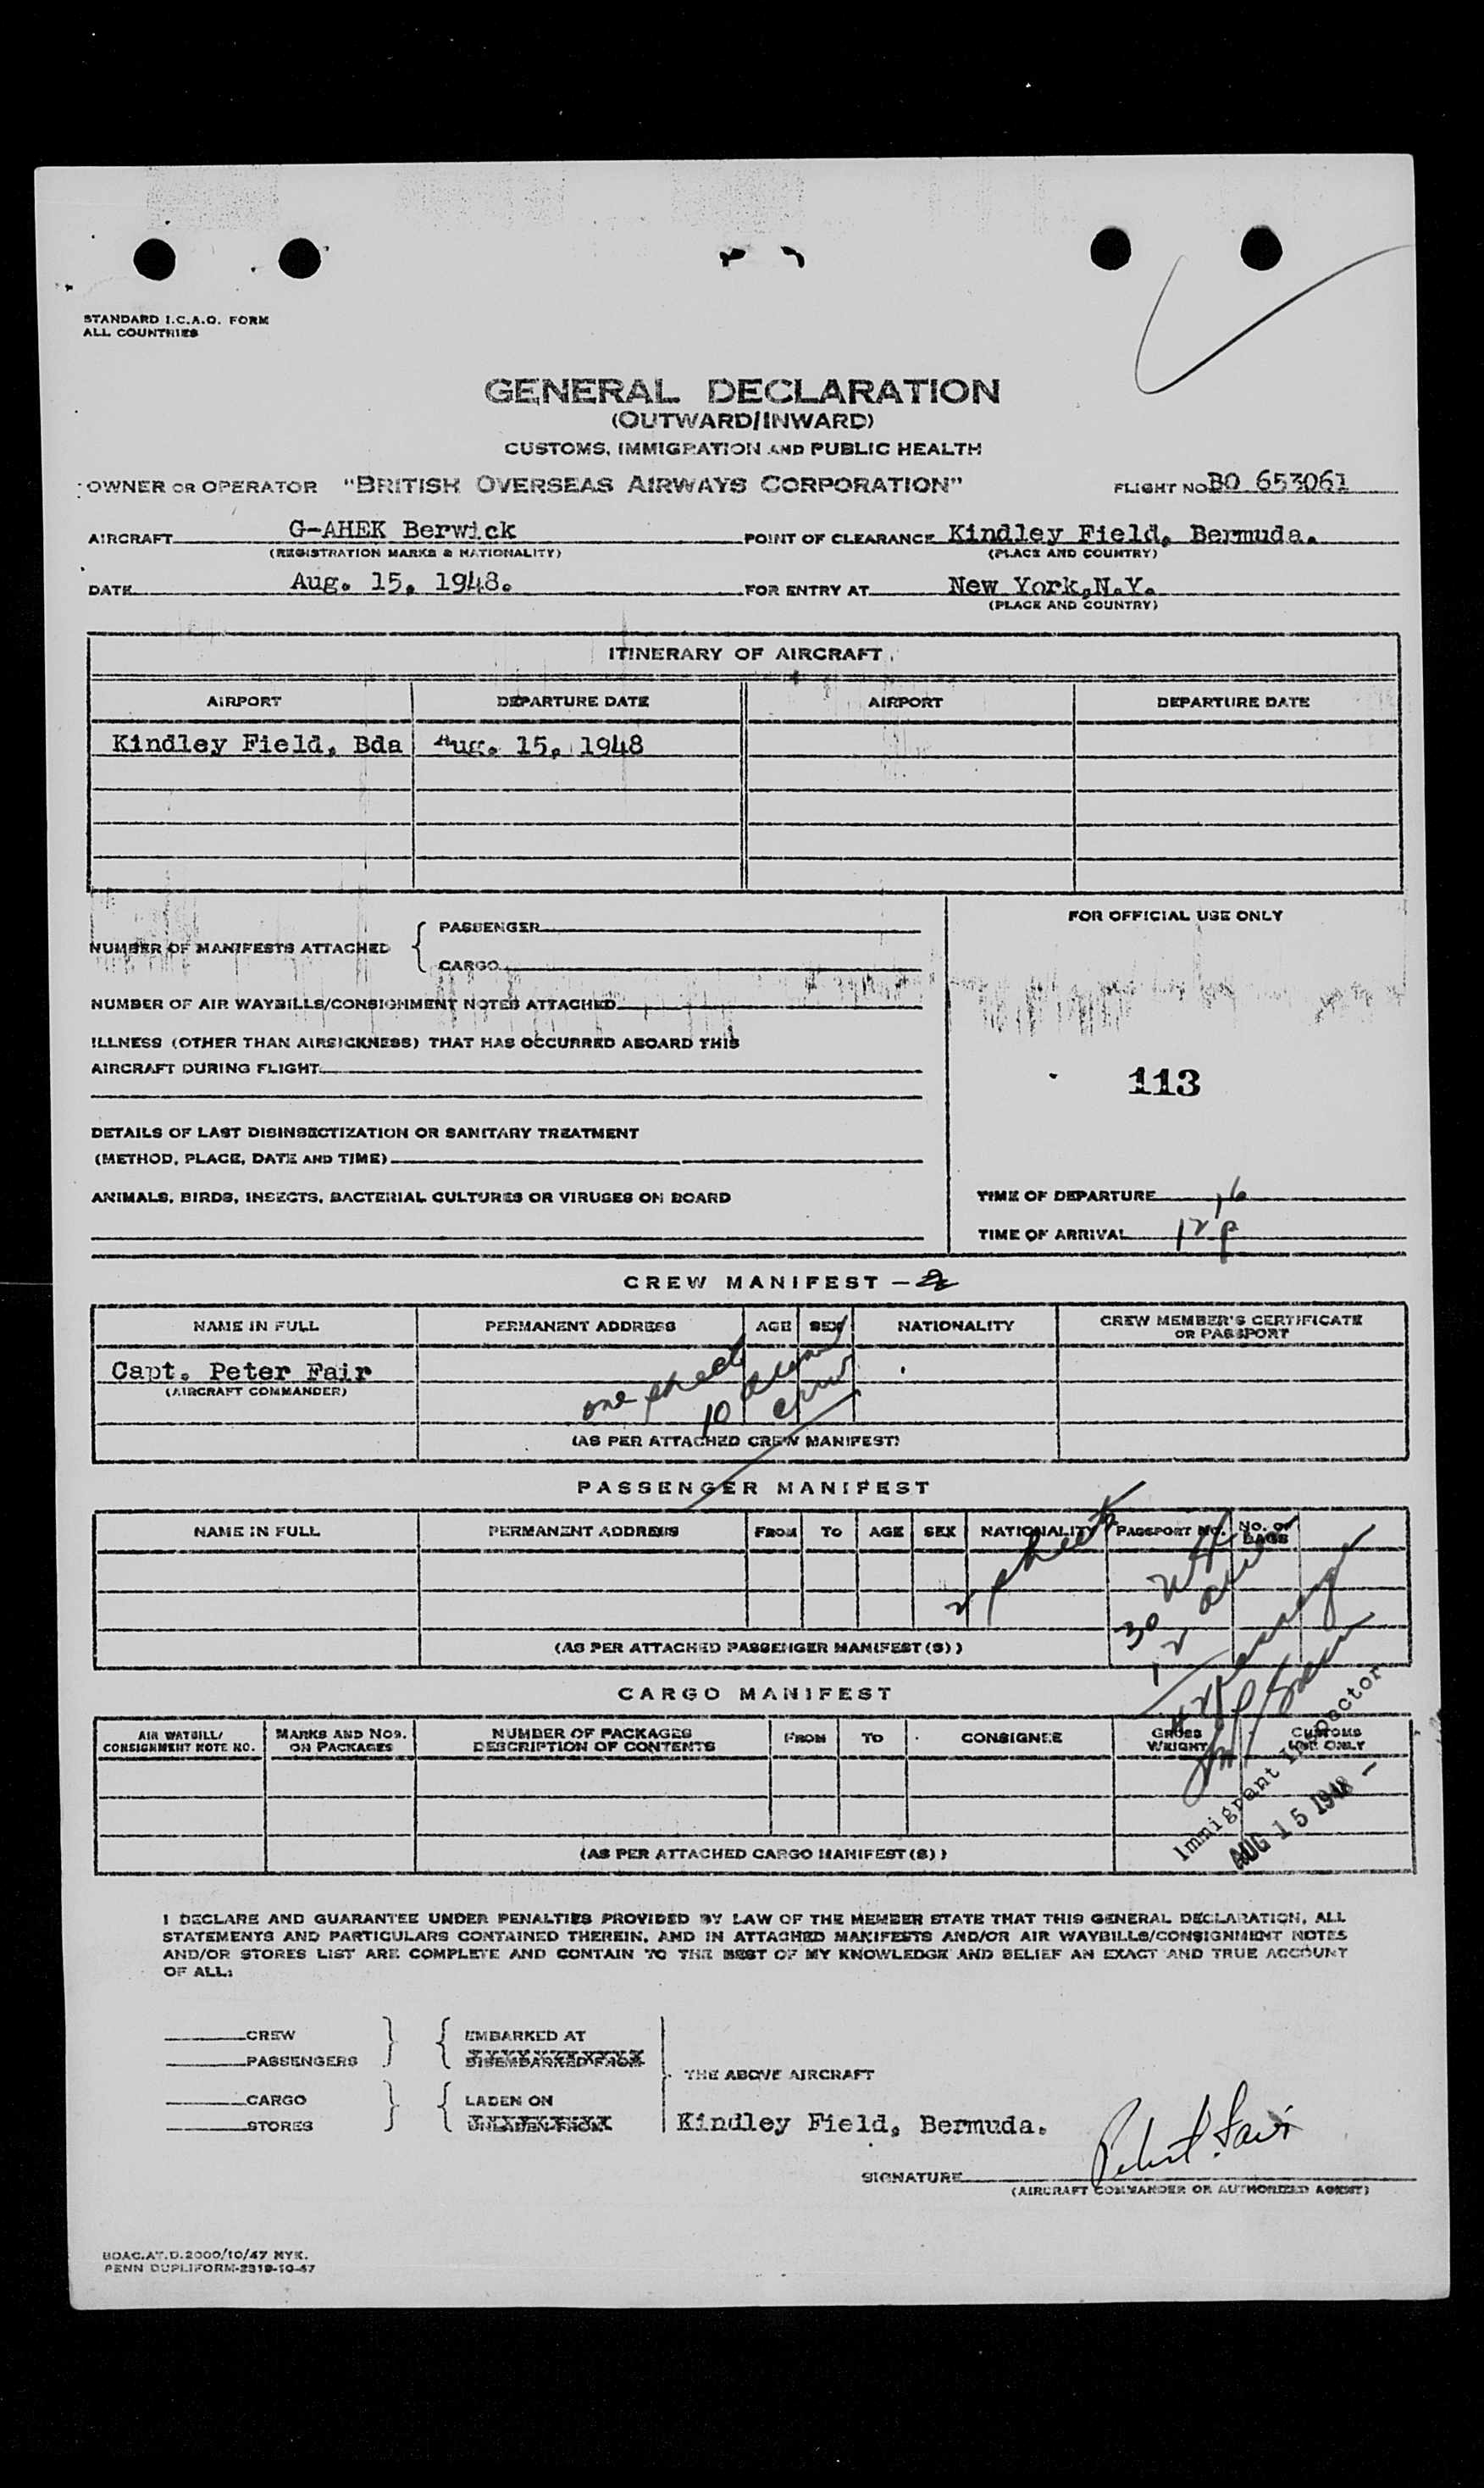 STANDARD I.C.A.O. FORM
ALL COUNTRIES
GENERAL DECLARATION
(OUTWARD/INWARD)
CUSTOMS, IMMIGRATION AND PUBLIC HEALTH
OWNER OR OPERATOR "BRITISH OVERSEAS AIRWAYS CORPORATION" FLIGHT NO. BO 653061
AIRCRAFT G-AHEK Berwick POINT OF CLEARANCE Kindley Field, Bermuda.
(REGISTRATION MARKS & NATIONALITY) (PLACE AND COUNTRY)
DATE Aug. 15, 1948. FOR ENTRY AT New York,N.Y.
(PLACE AND COUNTRY)
ITINERARY OF AIRCRAFT
AIRPORT DEPARTURE DATE AIRPORT DEPARTURE DATE
Kindley Field, Bda Aug. 15, 1948
FOR OFFICIAL USE ONLY
NUMBER OF MANIFESTS ATTACHED { PASSENGER
CARGO
NUMBER OF AIR WAYBILLS/CONSIGNMENT NOTES ATTACHED
ILLNESS (OTHER THAN AIRSICKNESS) THAT HAS OCCURRED ABOARD THIS
AIRCRAFT DURING FLIGHT
113
DETAILS OF LAST DISINSECTIZATION OR SANITARY TREATMENT
(METHOD, PLACE, DATE AND TIME)
ANIMALS, BIRDS, INSECTS, BACTERIAL CULTURES OR VIRUSES ON BOARD
TIME OF DEPARTURE
TIME OF ARRIVAL 12 P
CREW MANIFEST
NAME IN FULL PERMANENT ADDRESS AGE SEX NATIONALITY CREW MEMBER'S CERTIFICATE
OR PASSPORT
Capt. Peter Fair
(AIRCRAFT COMMANDER)
one sheet
10 alien
crew
(AS PER ATTACHED CREW MANIFEST)
PASSENGER MANIFEST
NAME IN FULL PERMANENT ADDRESS FROM TO AGE SEX NATIONALITY PASSPORT NO. NO. OF
BAGS
2 sheets
30
12
(AS PER ATTACHED PASSENGER MANIFEST(S))
CARGO MANIFEST
AIR WAYBILL/
CONSIGNMENT NOTE NO. MARKS AND NOS.
ON PACKAGES NUMBER OF PACKAGES
DESCRIPTION OF CONTENTS FROM TO CONSIGNEE GROSS
WEIGHT CUSTOMS
USE ONLY
Immigrant Inspector
AUG 15 1948
(AS PER ATTACHED CARGO MANIFEST(S))
I DECLARE AND GUARANTEE UNDER PENALTIES PROVIDED BY LAW OF THE MEMBER STATE THAT THIS GENERAL DECLARATION, ALL
STATEMENTS AND PARTICULARS CONTAINED THEREIN, AND IN ATTACHED MANIFESTS AND/OR AIR WAYBILLS/CONSIGNMENT NOTES
AND/OR STORES LIST ARE COMPLETE AND CONTAIN TO THE BEST OF MY KNOWLEDGE AND BELIEF AN EXACT AND TRUE ACCOUNT
OF ALL:
CREW EMBARKED AT
PASSENGERS DISEMBARKED FROM
THE ABOVE AIRCRAFT
CARGO LADEN ON
STORES UNLADEN FROM Kindley Field, Bermuda.
SIGNATURE
(AIRCRAFT COMMANDER OR AUTHORIZED AGENT)
BOAC.AT.D.2000/10/47 NYK.
PENN DUPLIFORM-2319-10-47